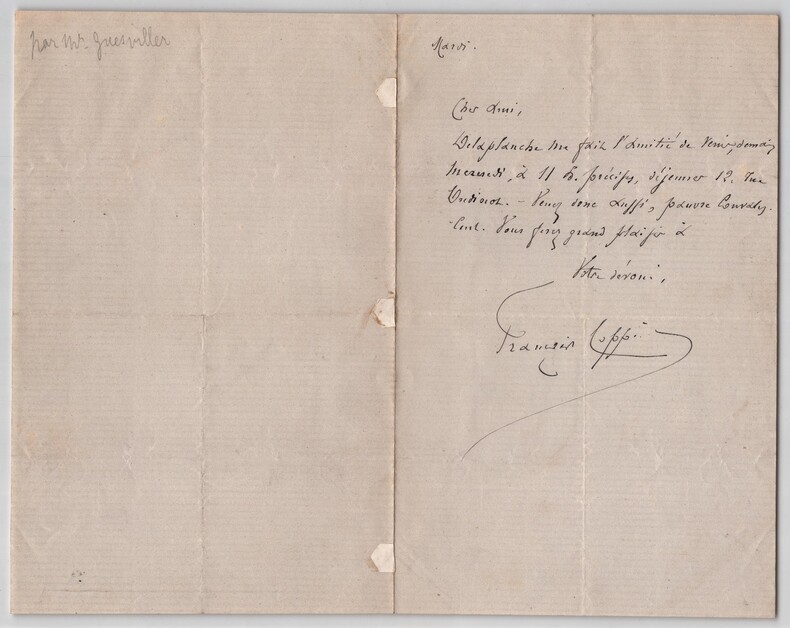 par Mr. Guesviller
Mardi.
Cher ami,
Delaplanche me fait l'amitié de venir, demain
Mercredi, à 11 h. précises, déjeuner 12, rue
Oudinot. - Venez donc aussi, pauvre convales-
-cent. Vous ferez grand plaisir à
Votre dévoué,
François Coppée